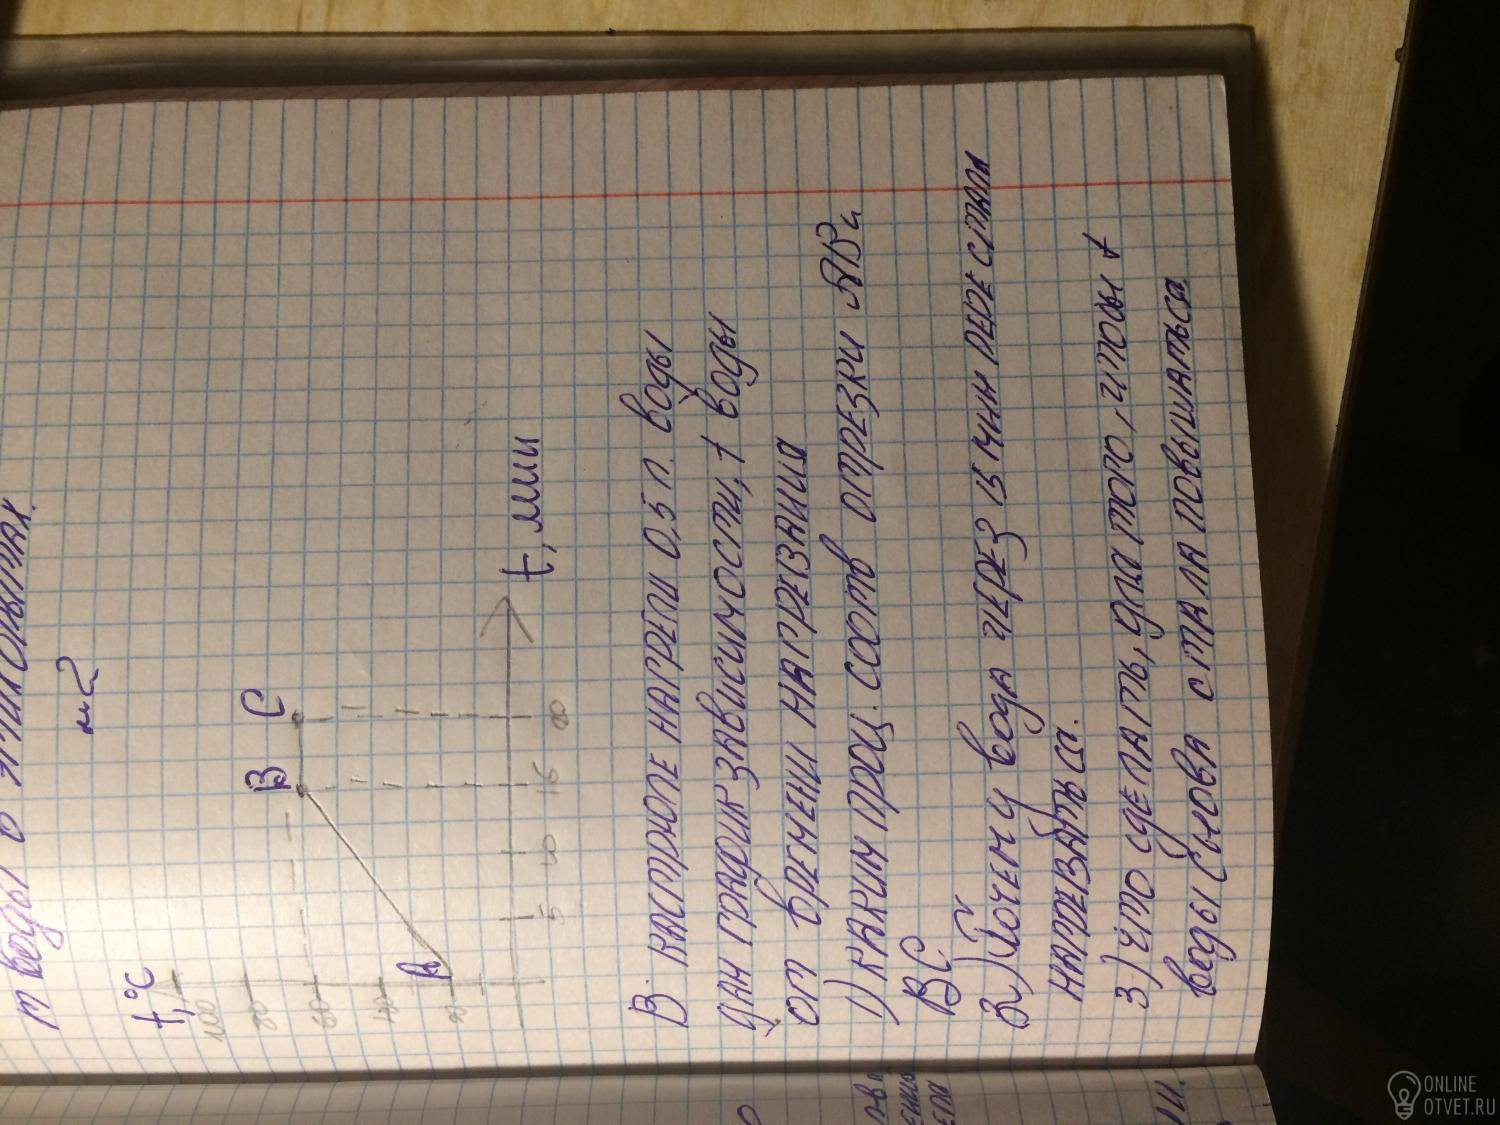 t воды в
м2
t,°C
100
80
60
40
20
A
B
C
5
10
15
20
t, мин
В кастрюле нагрели 0,5 л. воды
дан график зависимости, t воды
от времени нагревания
1) каким проц. соотв отрезки АВ и
ВС
2) Почему вода через 15 мин перестала
нагреваться.
3) что сделать, для того, чтобы t
воды снова стала повышаться
ONLINE
OTVET.RU